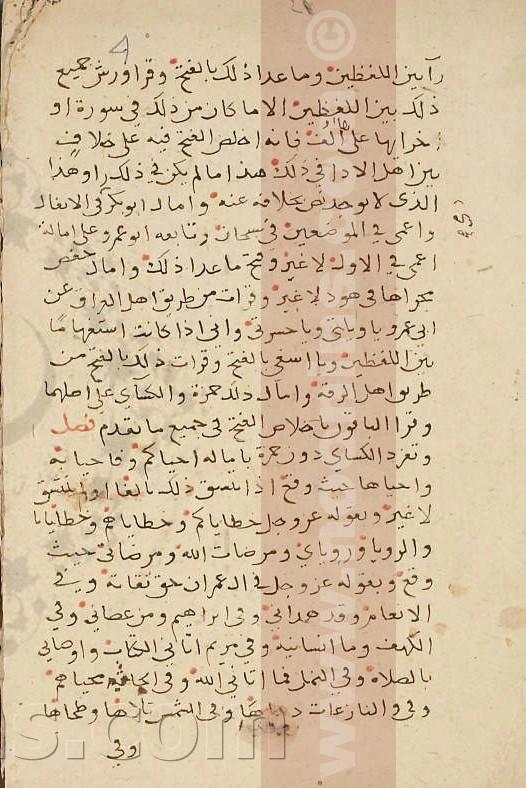 رآ بين اللفظين وما عدا ذلك بالفتح وقرا ورش جميع
ذلك بين اللفظين الا ما كان من ذلك في سورة او
اخر ايها على ها الف فانه اخلص الفتح فيه على خلاف
بين اهل الادا في ذلك هذا ما لم يكن في ذلك را وهذا
الذي لا يوجد نص بخلافه عنه وامال ابو بكر في الانفال
واعمى في الموضعين في سبحان وتابعه ابو عمرو على امالة
اعمى في الاول لا غير وفتح ما عدا ذلك وامال حفص
مجراها في هود لا غير وقرات من طريق اهل العراق عن
ابي عمرو يا ويلتى ويا حسرتى وانى اذا كانت استفهاما
بين اللفظين ويا اسفى بالفتح وقرات ذلك بالفتح من
طريق اهل الرقة وامال ذلك حمزة والكسآي على اصلهما
وقرا الباقون باخلاص الفتح في جميع ما تقدم فصل
وتفرد الكساي دون حمزة بامالة احياكم وفاحيا به
واحياها حيث وقع اذا نسق ذلك بالفا او لم ينسق
لا غير وبقوله عز وجل خطاياكم وخطاياهم وخطايانا
والرويا وروياي ومرضات الله ومرضاتي حيث
وقع وبقوله عز وجل في ال عمران حق تقاته وفي
الانعام وقد هداني وفي ابراهيم ومن عصاني وفي
الكهف وما انسانيه وفي مريم اتاني الكتاب واوصاني
بالصلاة وفي النمل فما اتاني الله وفي الجاثية محياهم
وفي والنازعات دحاها وفي الشمس تلاها وطحاها
وفي